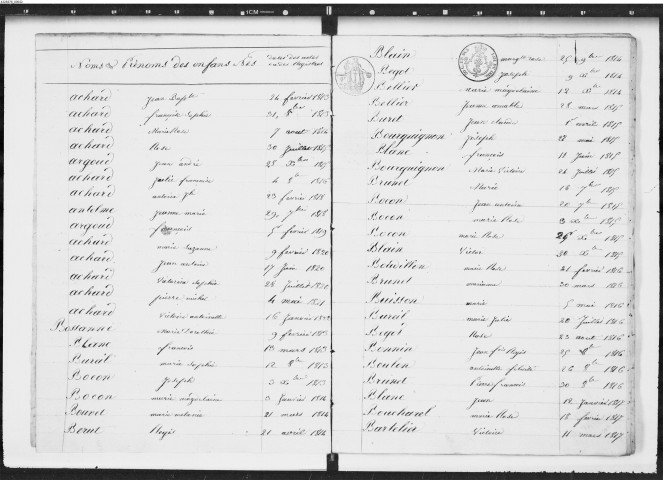 Noms & Prénoms des enfans Nés dates des actes
achard jean Bapte 24 février 1813
achard françois Sophie 31, 8bre 1813
achard Marie Rose 7 aout 1814
achard Rose 30 juillet 1815
argoud jean andré 25 Xbre 1815
achard 4 8bre 1816
achard antoine 23 février 1818
antelme jeanne marie 29, 7bre 1818
argoud françois 5 février 1819
achard marie Suzanne 9 février 1820
achard jean antoine 17 juin 1820
achard Victorine Sophie 28 juillet 1820
achard pierre 4 mai 1821
achard Victoire antoinette 16 janvier 1822
Bossanne Marie Dorothée 9 février 1813
Blanc françois 13 mars 1813
Burait marie Sophie 12 8bre 1813
Bocon joseph 3 Xbre 1813
Bocon marie magdelaine 3 janvier 1814
Bouvet marie victoire 21 mars 1814
Borut Régis 21 avril 1814
Blain margte rose 25 9bre 1814
Begot joseph 9 Xbre 1814
Bellier marie magdelaine 12 Xbre 1814
Bellier jeanne 28 mars 1815
Buret jean 8 avril 1815
Bourguignon joseph 22 mai 1815
Blanc françois 11 juin 1815
Bourguignon Marie Victoire 26 juillet 1815
Brunet Marie 16 7bre 1815
Bocon jean antoine 20 7bre 1815
Bocon marie Rose 3 Xbre 1815
Bocon marie Rose 25 Xbre 1815
Blain Victor 30 Xbre 1815
Bouvillon marie Rose 21 février 1816
Brunet marianne 30 mars 1816
Buisson marie 5 mai 1816
Bureil marie julie 20 juillet 1816
Begot Rose 23 aout 1816
Bonnin jean fois Régis 25 8bre 1816
Bouton antoinette félicité 26 8bre 1816
Brunet Pierre françois 30 9bre 1816
Blanc jean 12 janvier 1817
Bouchard marie Rose 18 février 1817
Bartelier Victoire 11 mars 1817